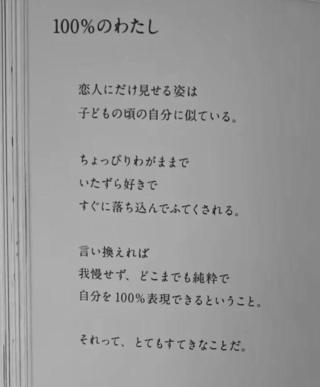 100%のわたし
恋人にだけ見せる姿は
子どもの頃の自分に似ている。
ちょっぴりわがままで
いたずら好きで
すぐに落ち込んでふてくされる。
言い換えれば
我慢せず、どこまでも純粋で
自分を100%表現できるということ。
それって、とてもすてきなことだ。